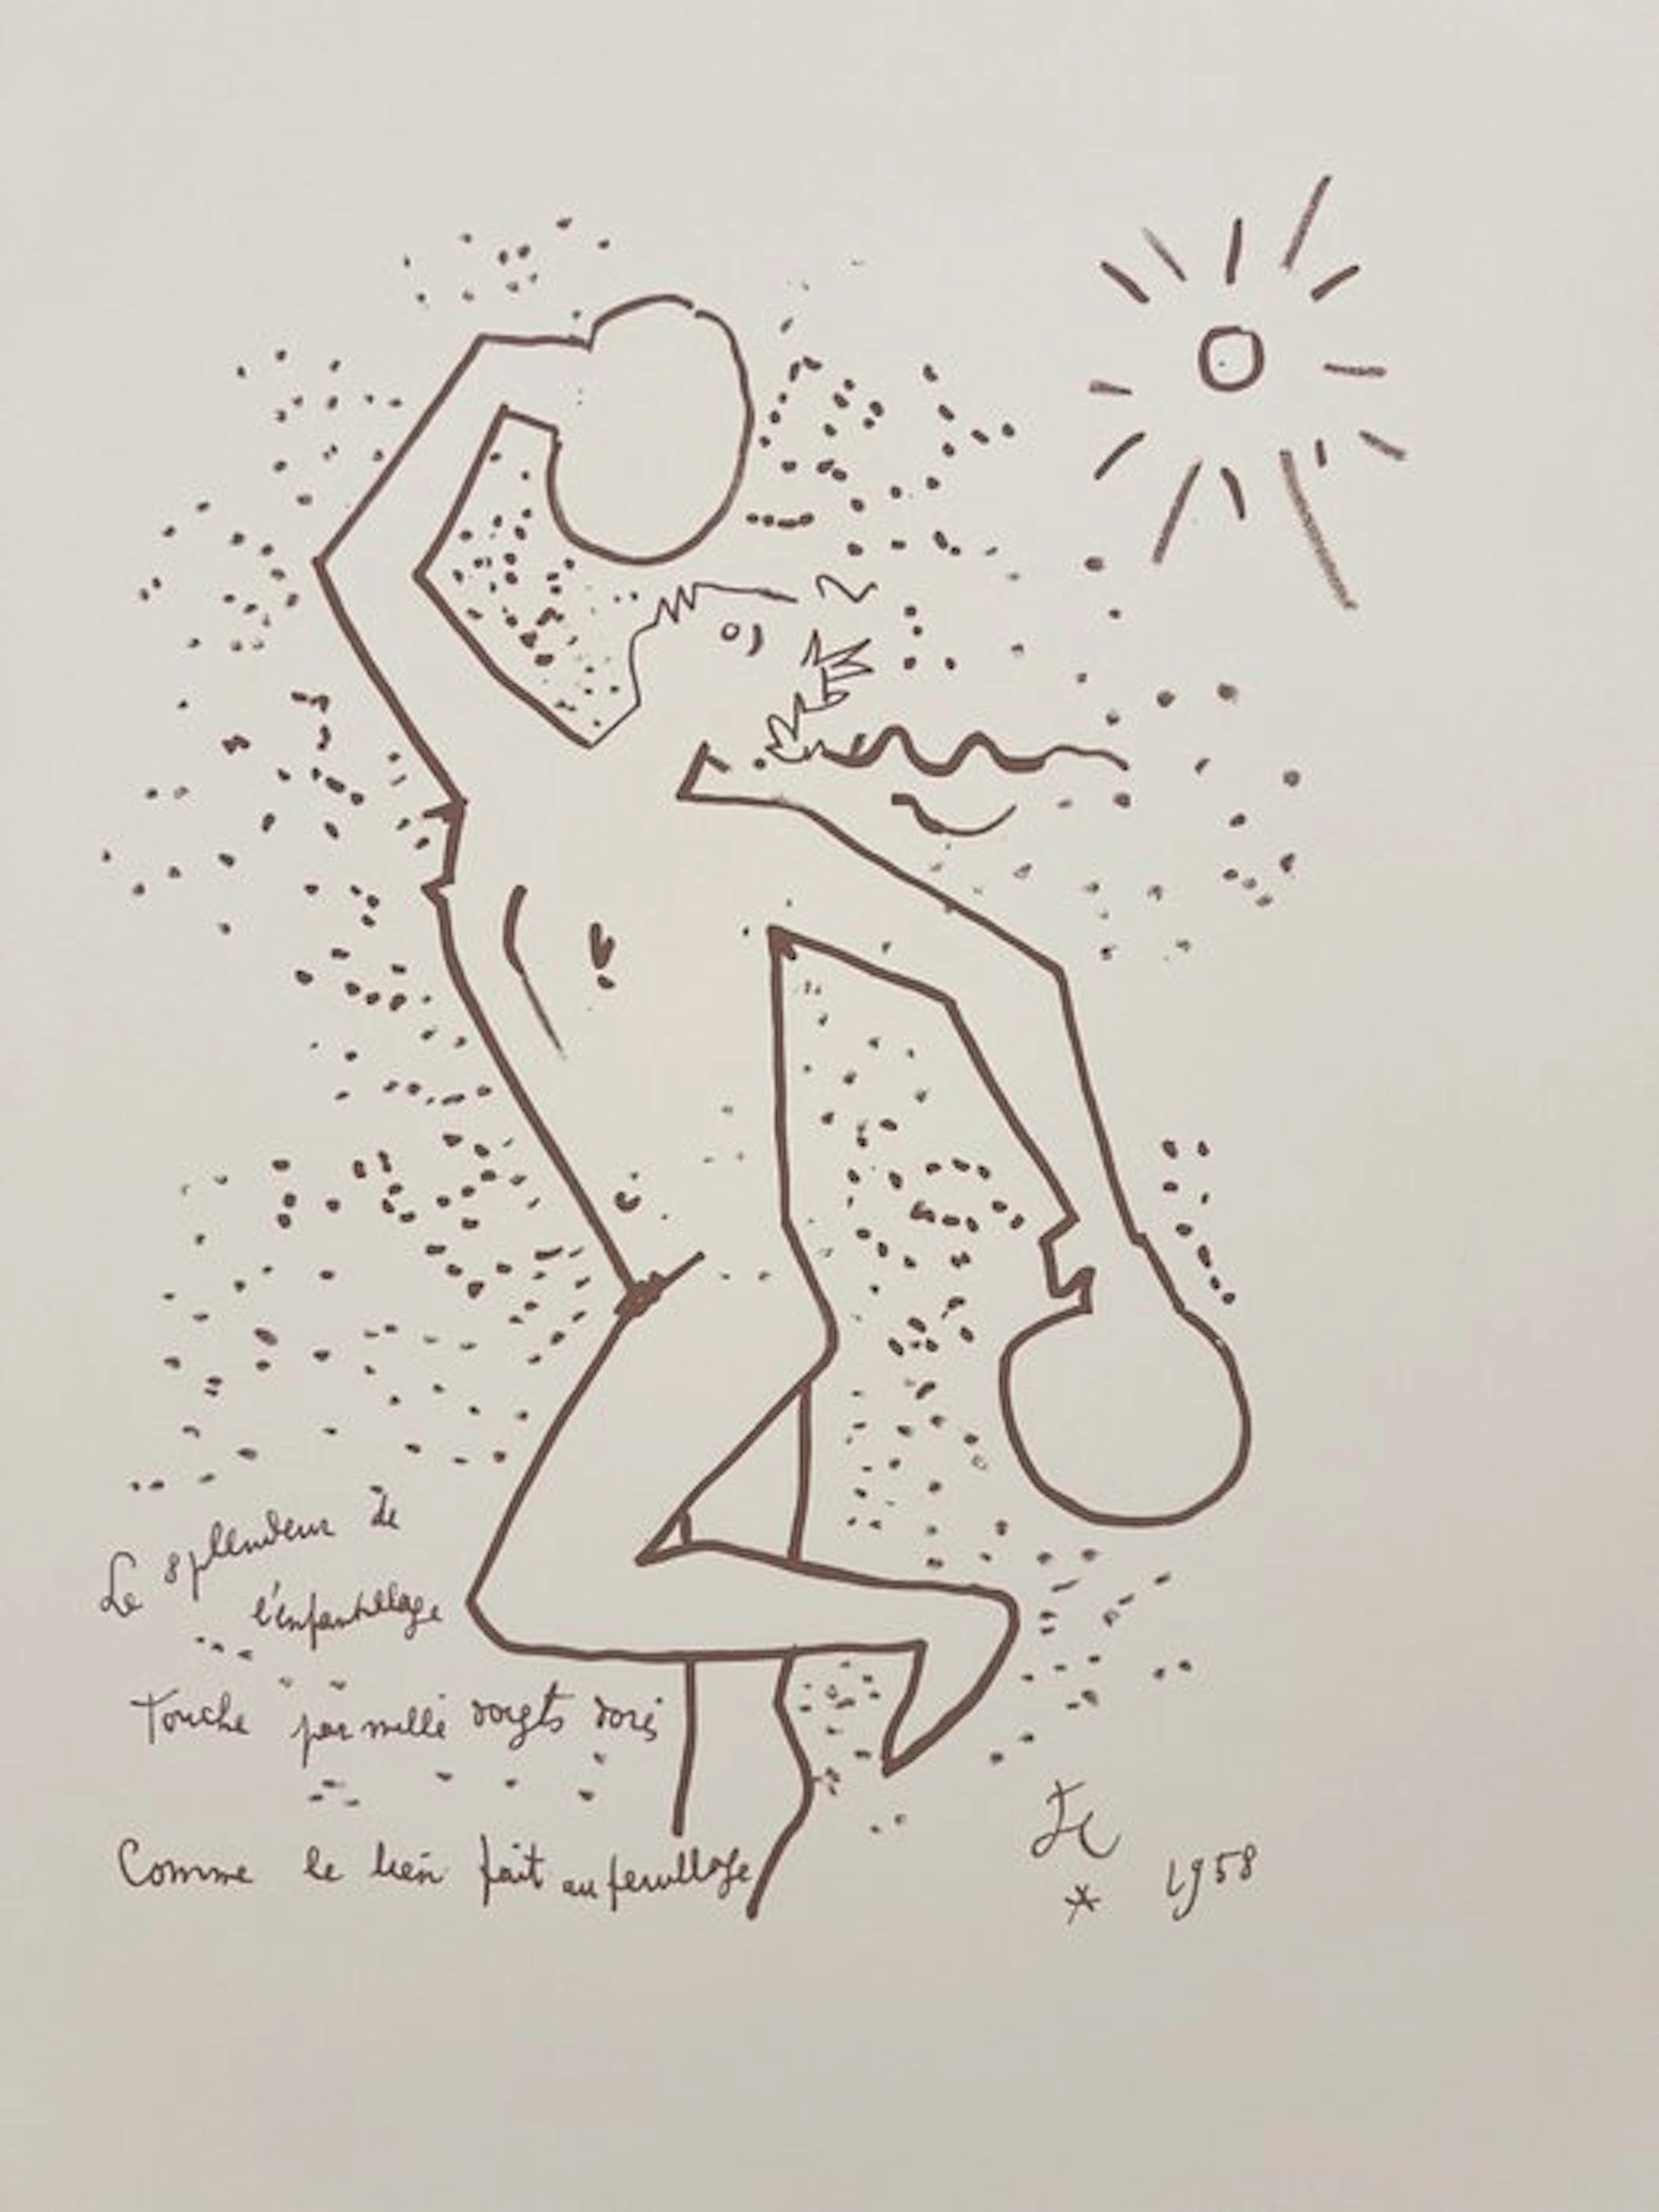 Le splendeur de
l'enfantillage
Touche par mille doigts dorés
Comme le lien fait au feuillage
Jc
1958